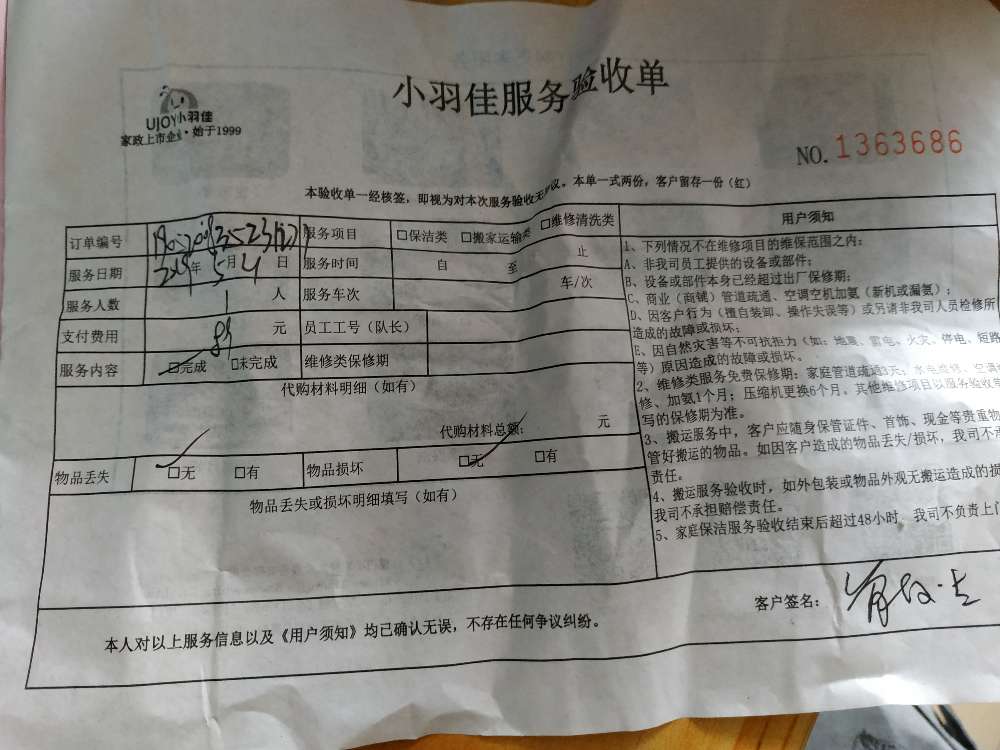 小羽佳服务验收单
UJOY小羽佳
家政上市企业·始于1999
NO. 1363686
本验收单一经核签，即视为对本次服务验收无异议。本单一式两份，客户留存一份（红）
订单编号
服务项目 □保洁类 □搬家运输类 □维修清洗类
服务日期 年 5月4日 服务时间 自 至 止
服务人数 1 人 服务车次 车/次
支付费用 元 员工工号（队长）
服务内容 □完成 □未完成 维修类保修期
代购材料明细（如有）
代购材料总额： 元
物品丢失 □无 □有 物品损坏 □无 □有
物品丢失或损坏明细填写（如有）
用户须知
1、下列情况不在维修项目的维保范围之内：
A、非我司员工提供的设备或部件；
B、设备或部件本身已经超过出厂保修期；
C、商业（商铺）管道疏通、空调空机加氨（新机或漏氨）；
D、因客户行为（擅自装卸、操作失误等）或另请非我司人员检修所
造成的故障或损坏；
E、因自然灾害等不可抗拒力（如：地震、雷电、火灾、停电、短路
等）原因造成的故障或损坏。
2、维修类服务免费保修期：家庭管道疏通3天；水电维修、空调
修、加氨1个月；压缩机更换6个月。其他维修项目以服务验收单
写的保修期为准。
3、搬运服务中，客户应随身保管证件、首饰、现金等贵重物
管好搬运的物品。如因客户造成的物品丢失/损坏，我司不承
责任。
4、搬运服务验收时，如外包装或物品外观无搬运造成的损
我司不承担赔偿责任。
5、家庭保洁服务验收结束后超过48小时，我司不负责上门
客户签名：
本人对以上服务信息以及《用户须知》均已确认无误，不存在任何争议纠纷。